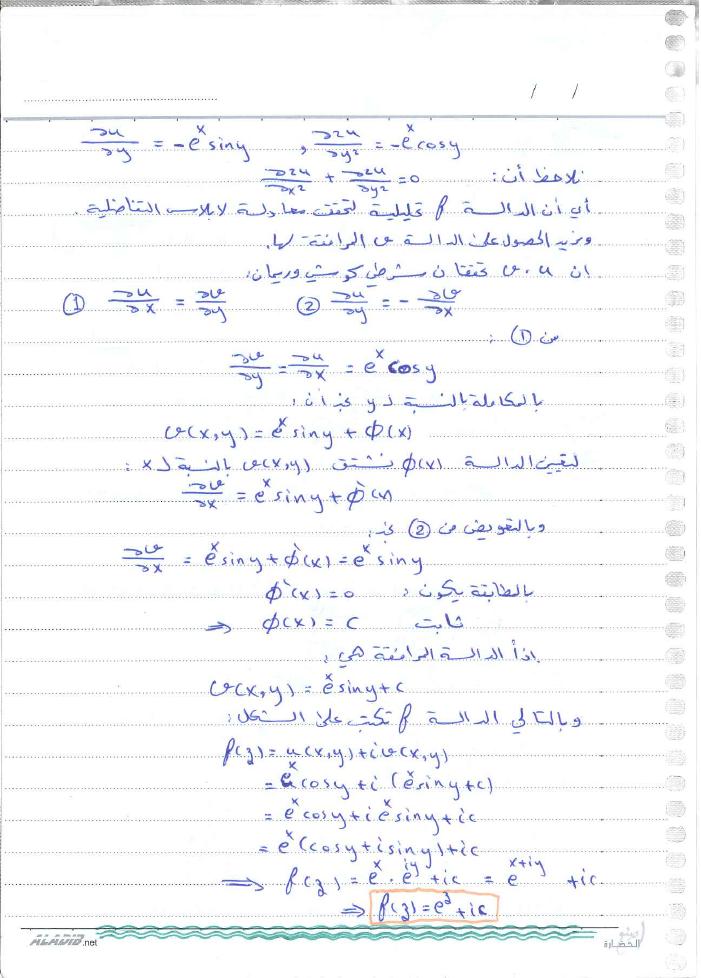 / /
∂u/∂y = -e^x siny , ∂2u/∂y² = -e^x cosy
نلاحظ أن: ∂2u/∂x² + ∂2u/∂y² = 0
أي أن الدالة f تحليلية لتحقق معادلة لابلاس التفاضلية.
ونريد الحصول على الدالة v المرافقة لها.
ان u, v تحققان شرطي كوشي وريمان:
① ∂u/∂x = ∂v/∂y ② ∂u/∂y = - ∂v/∂x
من ① :
∂v/∂y = ∂u/∂x = e^x cosy
بالمكاملة بالنسبة لـ y نجد أن:
v(x,y) = e^x siny + φ(x)
لتعيين الدالة φ(x) نشتق v(x,y) بالنسبة لـ x :
∂v/∂x = e^x siny + φ'(x)
وبالتعويض من ② نجد:
∂v/∂x = e^x siny + φ'(x) = e^x siny
بالمطابقة يكون : φ'(x) = 0
⇒ φ(x) = C ثابت
اذاً الدالة المرافقة هي :
v(x,y) = e^x siny + c
وبالتالي الدالة f تكتب على الشكل:
f(z) = u(x,y) + i v(x,y)
= e^x cosy + i (e^x siny + c)
= e^x cosy + i e^x siny + ic
= e^x (cosy + i siny) + ic
⇒ f(z) = e^x . e^iy + ic = e^x+iy + ic
⇒ f(z) = e^z + ic
ALADIB.net
الحضارة